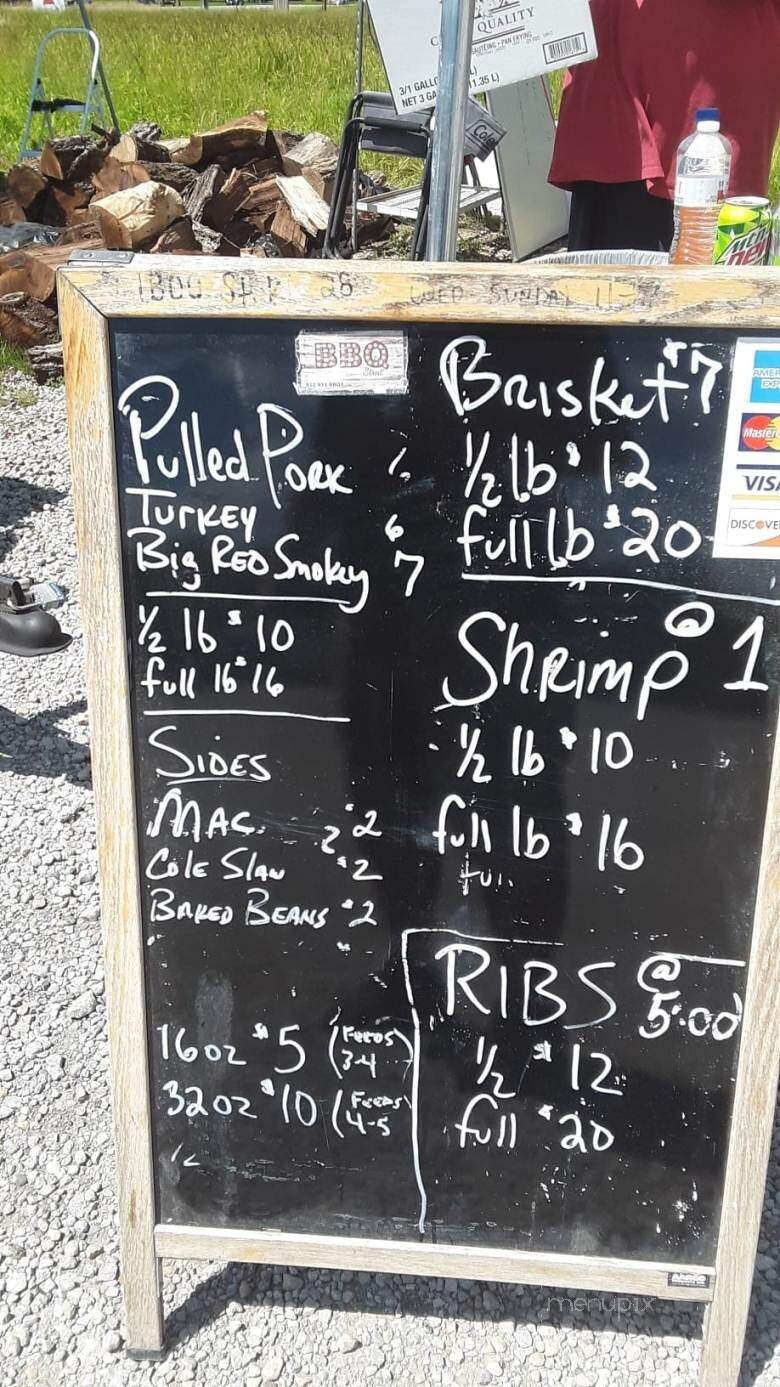 QUALITY
SAUTEING • PAN FRYING
3/1 GALL
NET 3 GA 11.35 L)
1800 28 WED SUNDAY 11-
BBQ
Street
Pulled Pork 6
Turkey 6
Big Red Smokey 7
½ lb $ 10
full lb $ 16
Sides
Mac. $2
Cole Slaw $2
Baked Beans $2
16oz $5 (Feeds 3-4)
32oz $10 (Feeds 4-5)
Brisket $7
½ lb $ 12
full lb $ 20
AMER
EXP
Master
VISA
DISCOVE
Shrimp @ 1
½ lb $ 10
full lb $ 16
Ribs @ 5.00
½ $ 12
full $ 20
menupix